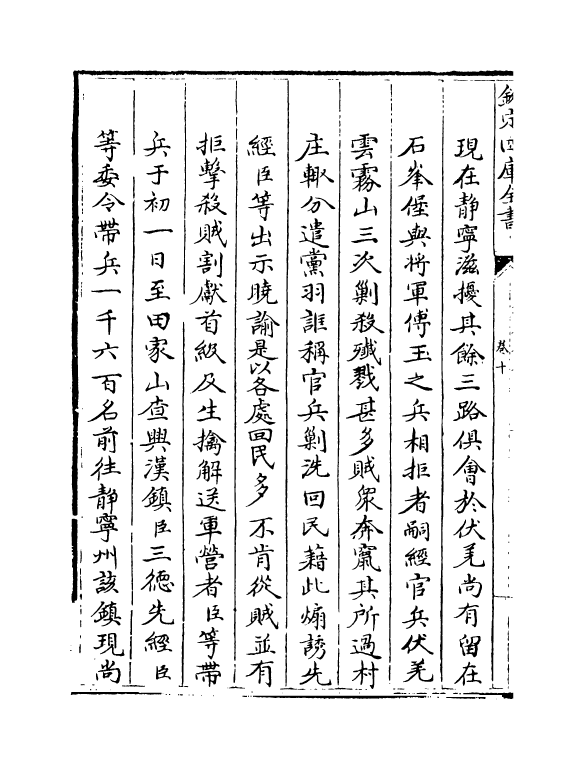 欽定四庫全書
卷十
現在靜寧滋擾其餘三路俱會於伏羌尚有留在
石峯堡與將軍傅玉之兵相拒者嗣經官兵伏羌
雲霧山三次剿殺殲戮甚多賊衆奔竄其所過村
庄輙分遣黨羽詭稱官兵剿洗回民藉此煽誘先
經臣等出示曉諭是以各處回民多不肯從賊並有
拒擊殺賊割獻首級及生擒解送軍營者臣等帶
兵于初一日至田家山查興漢鎮臣三德先經臣
等委令帶兵一千六百名前往靜寧州該鎮現尚